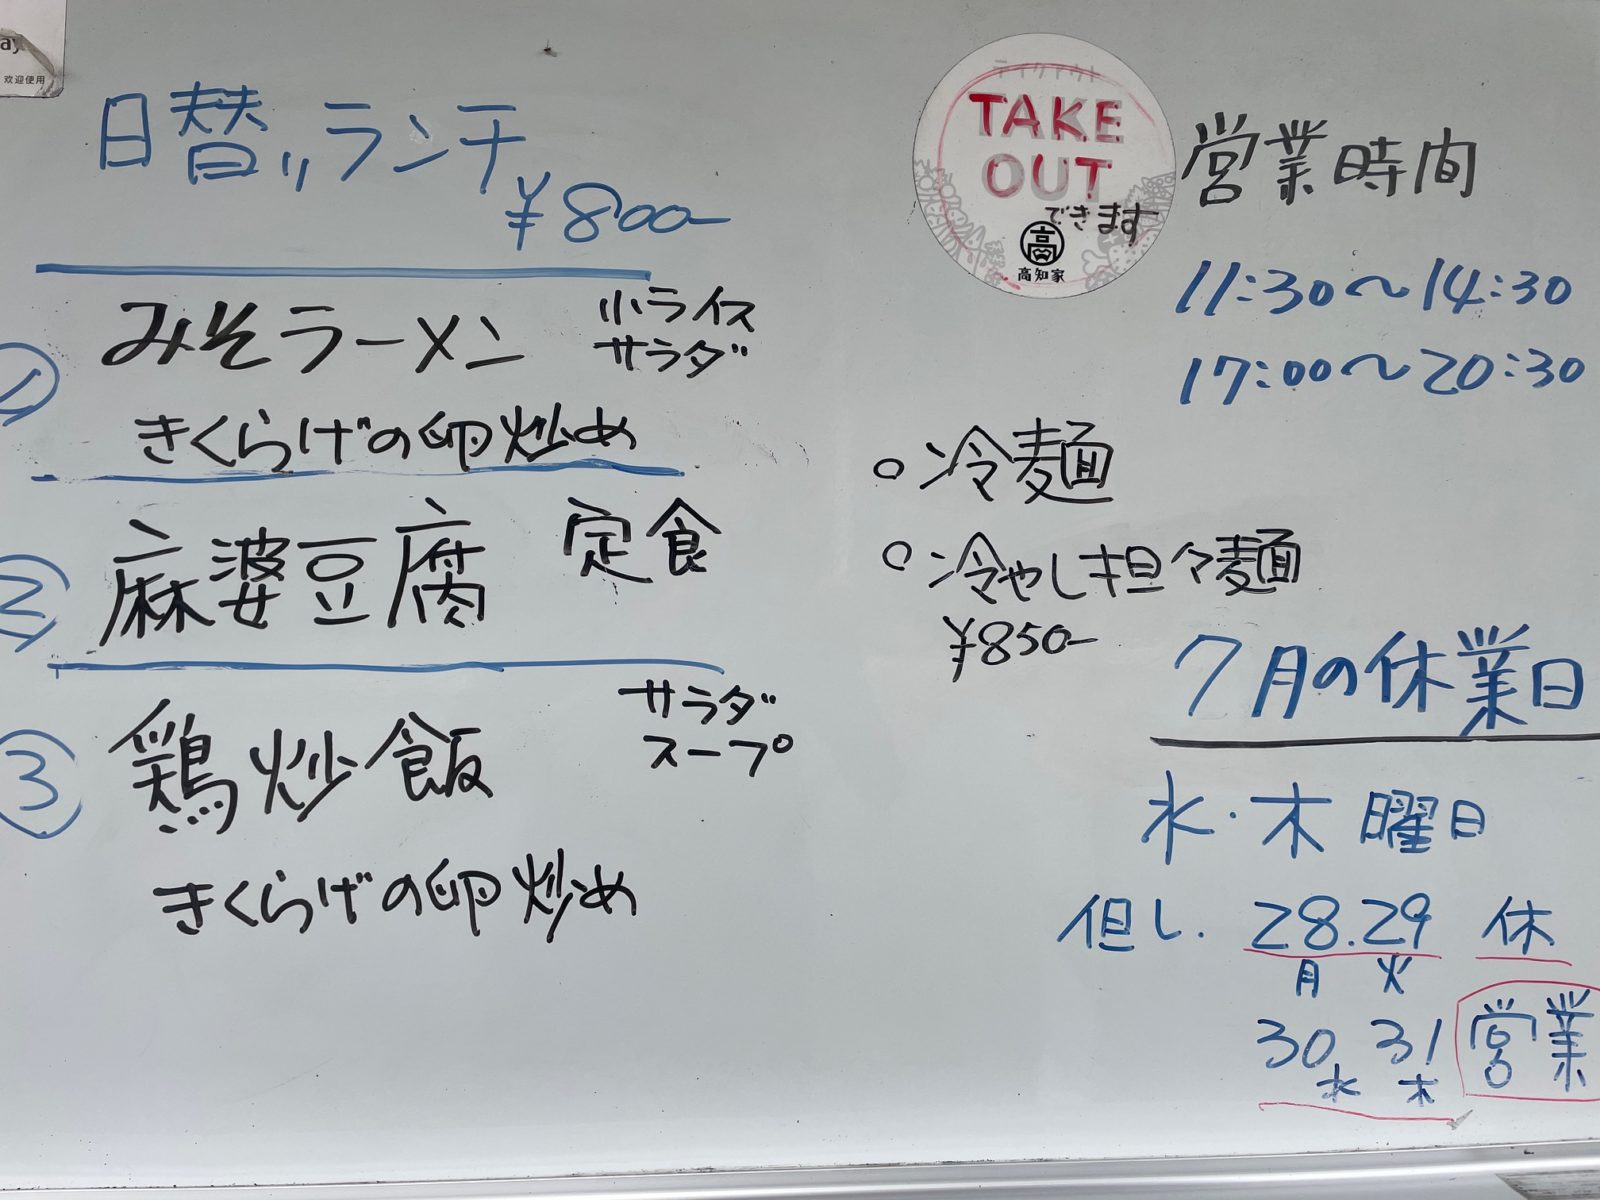 ay
欢迎使用
日替りランチ
¥800-
① みそラーメン 小ライス
サラダ
きくらげの卵炒め
② 麻婆豆腐 定食
③ 鶏炒飯 サラダ
スープ
きくらげの卵炒め
テイクアウト
TAKE
OUT
できます
高
高知家
営業時間
11:30〜14:30
17:00〜20:30
○冷麺
○冷やし担々麺
¥850-
7月の休業日
水・木曜日
但し. 28.29 休
月 火
30 31 営業
水 木